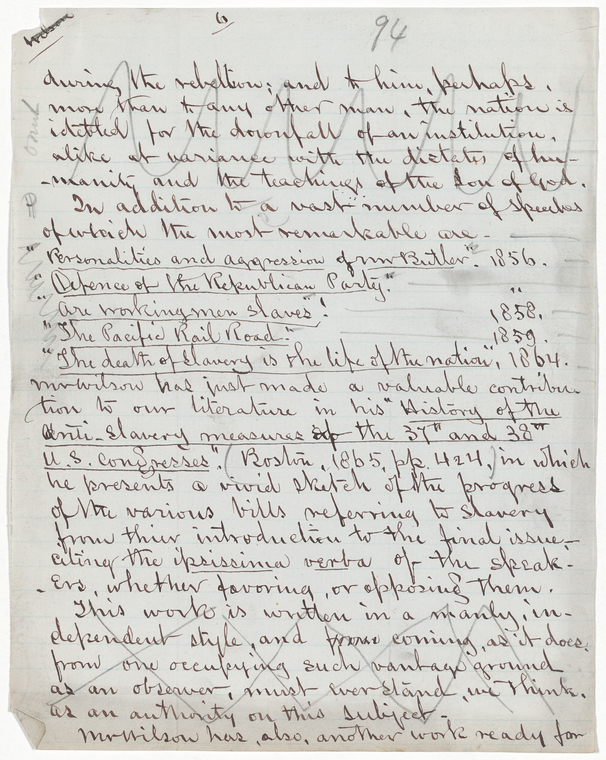 Wilson
6
94
during the rebellion; and to him, perhaps,
more than to any other man, the nation is
idebted for the downfall of an institution,
alike at variance with the dictates of hu-
-manity and the teachings of the Son of God.
In addition to a vast number of speeches
of which the most remarkable are -
"Personalities and aggression of Mr Butler". 1856.
"Defence of the Republican Party." "
"Are workingmen Slaves"? 1858.
"The Pacific Rail Road." 1859.
"The death of Slavery is the life of the nation", 1864.
Mr Wilson has just made a valuable contribu
tion to our literature in his "History of the
Anti-Slavery measures of the 37th and 38th
U.S. Congresses", (Boston, 1865, pp. 424,) in which
he presents a vivid sketch of the progress
of the various bills referring to Slavery
from thier introduction to the final issue,-
citing the ipsissima verba of the speak-
-ers, whether favoring, or opposing them.
This work is written in a manly, in-
dependent style, and from coming, as it does,
from one occupying such vantage ground
as an observer, must ever stand, we think,
as an authority on this subject.
Mr Wilson has, also, another work ready for